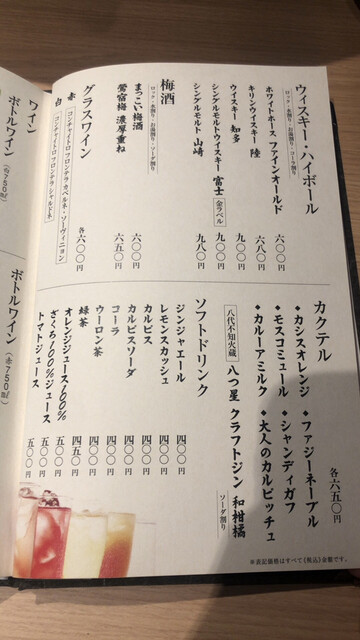 ウィスキー・ハイボール
ロック・水割り・お湯割り・ソーダ割り・コーラ割り
ホワイトホース ファインオールド 六〇〇円
キリンウイスキー 陸 六八〇円
ウイスキー 知多 九〇〇円
シングルモルトウイスキー 富士 金ラベル 九〇〇円
シングルモルト 山崎 九八〇円
梅酒
ロック・水割り・お湯割り・ソーダ割り
まっこい梅酒 六〇〇円
鶯宿梅 濃厚重ね 六五〇円
グラスワイン 各六〇〇円
赤 コンチャイトロ フロンテラ カベルネ・ソーヴィニョン
白 コンチャイトロ フロンテラ シャルドネ
カクテル 各六五〇円
◆カシスオレンジ ◆ファジーネーブル
◆モスコミュール ◆シャンディガフ
◆カルーアミルク ◆大人のカルピッチュ
八代不知火蔵 八つ星 クラフトジン 和柑橘 ソーダ割り
ソフトドリンク
ジンジャエール 四〇〇円
レモンスカッシュ 四〇〇円
カルピス 四〇〇円
カルピスソーダ 四〇〇円
コーラ 四〇〇円
ウーロン茶 四〇〇円
緑茶 四〇〇円
オレンジジュース100% 四五〇円
ざくろ100%ジュース 五〇〇円
トマトジュース 五〇〇円
※表記価格はすべて《税込》金額です。
ワイン
ボトルワイン (白750㎖)
ボトルワイン (赤750㎖)